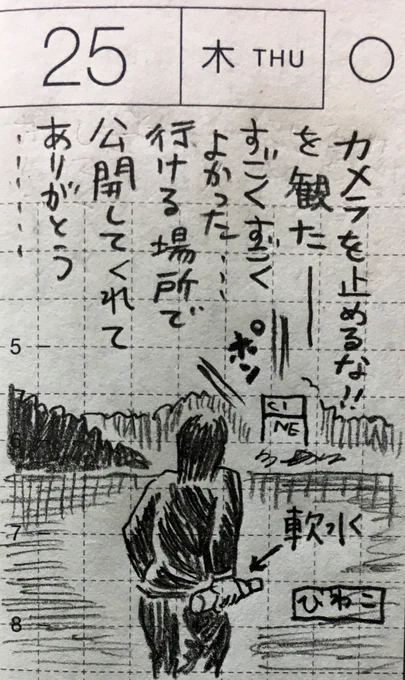 25
木 THU
カメラを止めるな!!
を観た──
ずごくずごく
よかった…
行ける場所で
公開してくれて
ありがとう
‥‥‥
ポン
CI
NE
軟水
びわこ
5
6
7
8